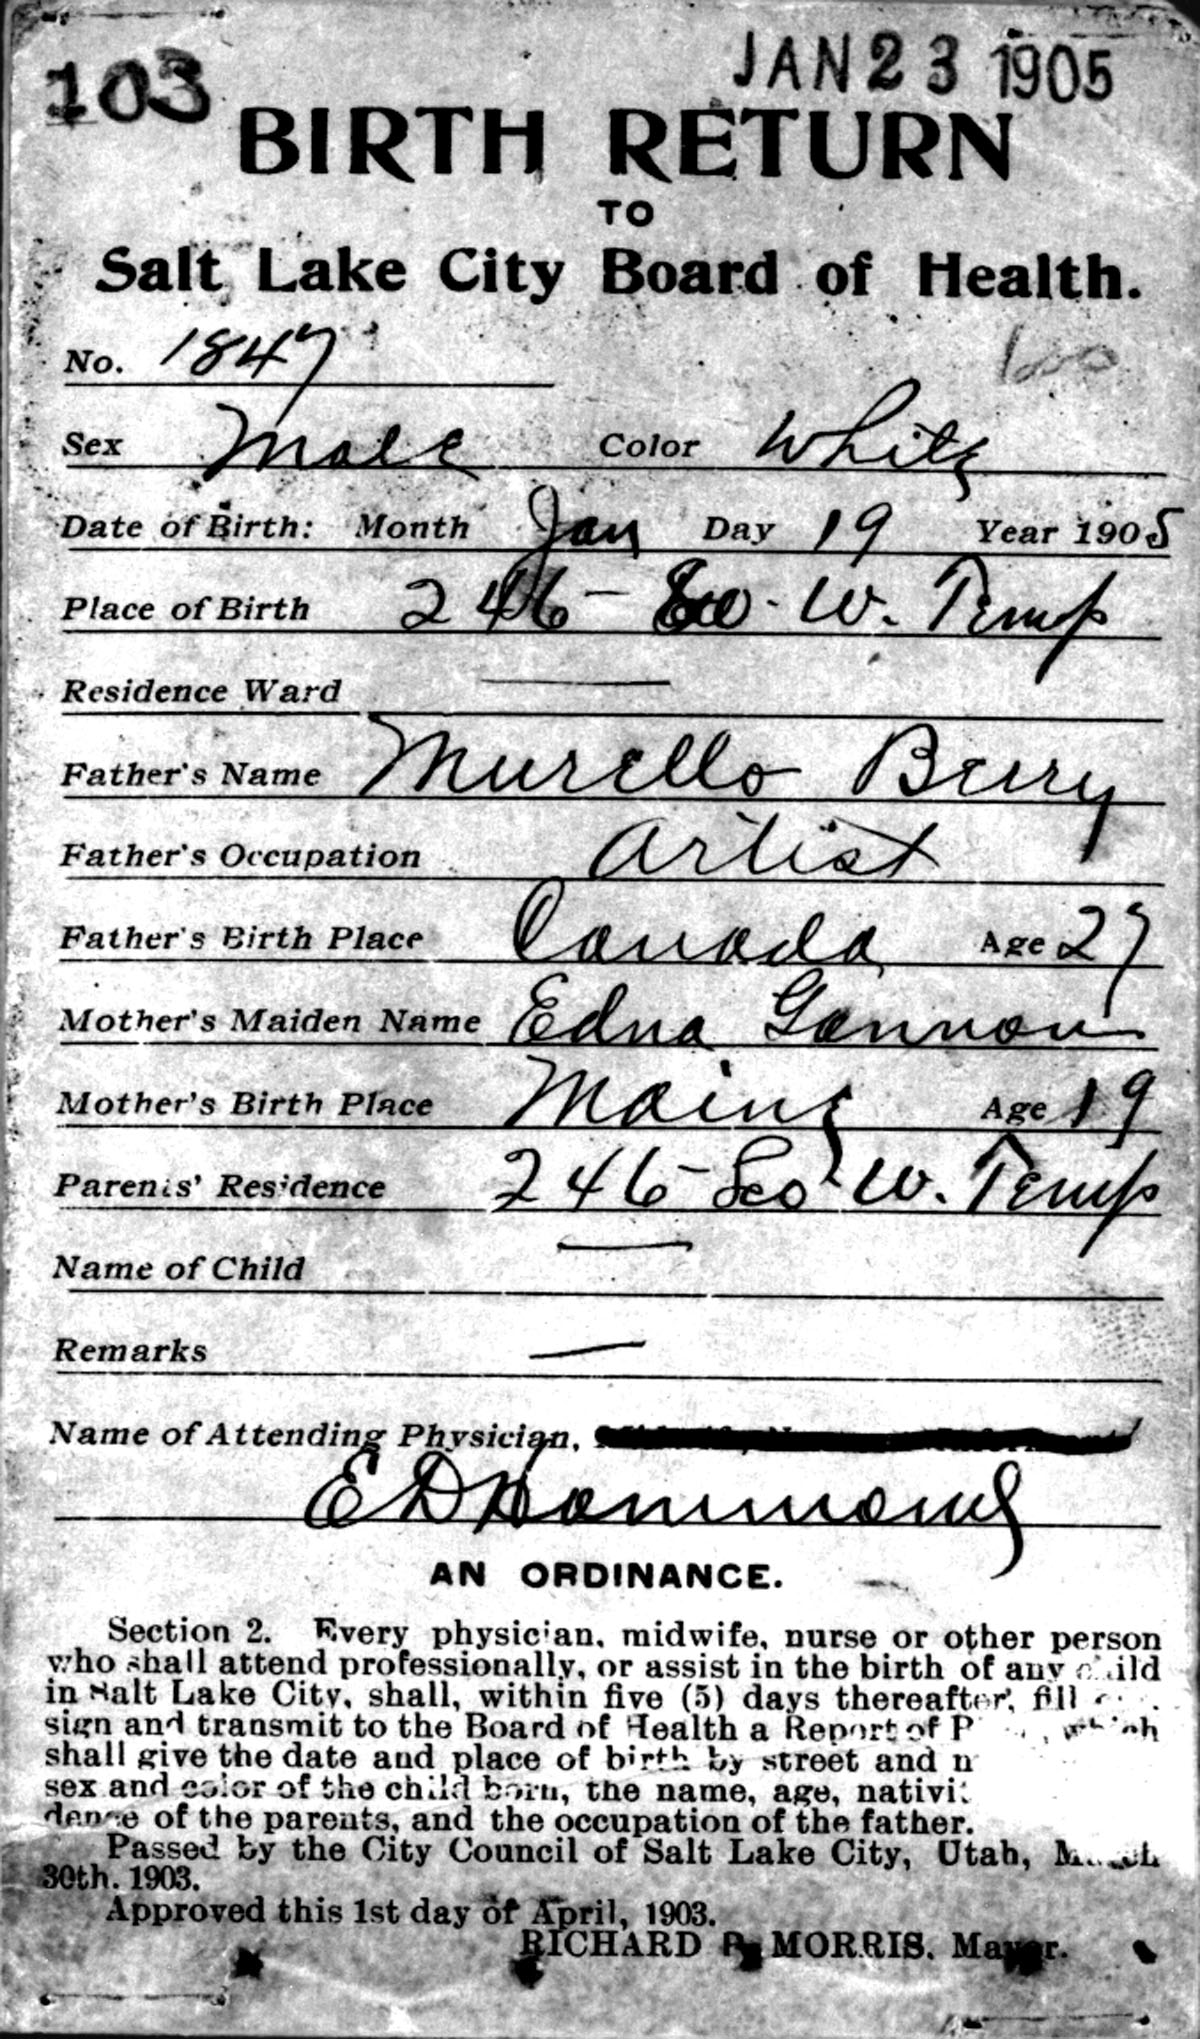 103
JAN 23 1905
BIRTH RETURN
TO
Salt Lake City Board of Health.
No. 1847
600
Sex Male Color White
Date of Birth: Month Jan Day 19 Year 1905
Place of Birth 246 - So. W. Temp
Residence Ward —
Father's Name Murello Berry
Father's Occupation Artist
Father's Birth Place Canada Age 27
Mother's Maiden Name Edna Gannon
Mother's Birth Place Maine Age 19
Parents' Residence 246 - So W. Temp
Name of Child —
Remarks —
Name of Attending Physician,
E D Hammond
AN ORDINANCE.
Section 2. Every physician, midwife, nurse or other person
who shall attend professionally, or assist in the birth of any child
in Salt Lake City, shall, within five (5) days thereafter, fill
sign and transmit to the Board of Health a Report of which
shall give the date and place of birth by street and
sex and color of the child born, the name, age,
dence of the parents, and the occupation of the father.
Passed by the City Council of Salt Lake City, Utah, March
30th. 1903.
Approved this 1st day of April, 1903.
RICHARD P. MORRIS. Mayor.